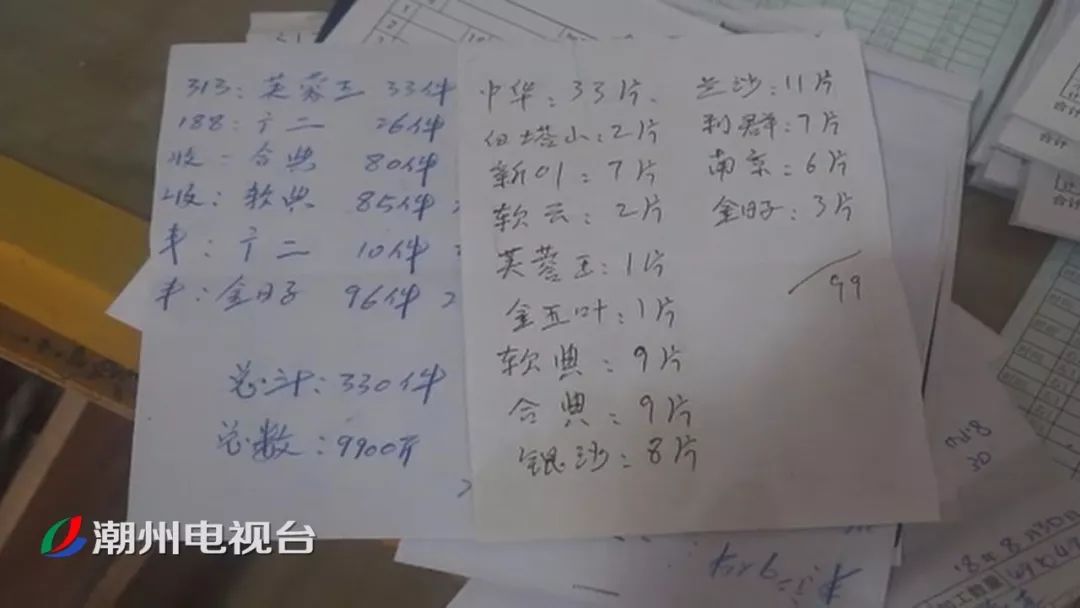 313：芙蓉王 33件
188：广二 26件
收：合典 80件
收：软典 85件
丰：广二 10件
丰：金日子 96件
总计：330件
总数：9900斤
中华：33片
白塔小：2片
新01：7片
软云：2片
芙蓉王：1片
金五叶：1片
软典：9片
合典：9片
银沙：8片
兰沙：11片
利群：7片
南京：6片
金日子：3片
99
30
合计
合计
潮州电视台